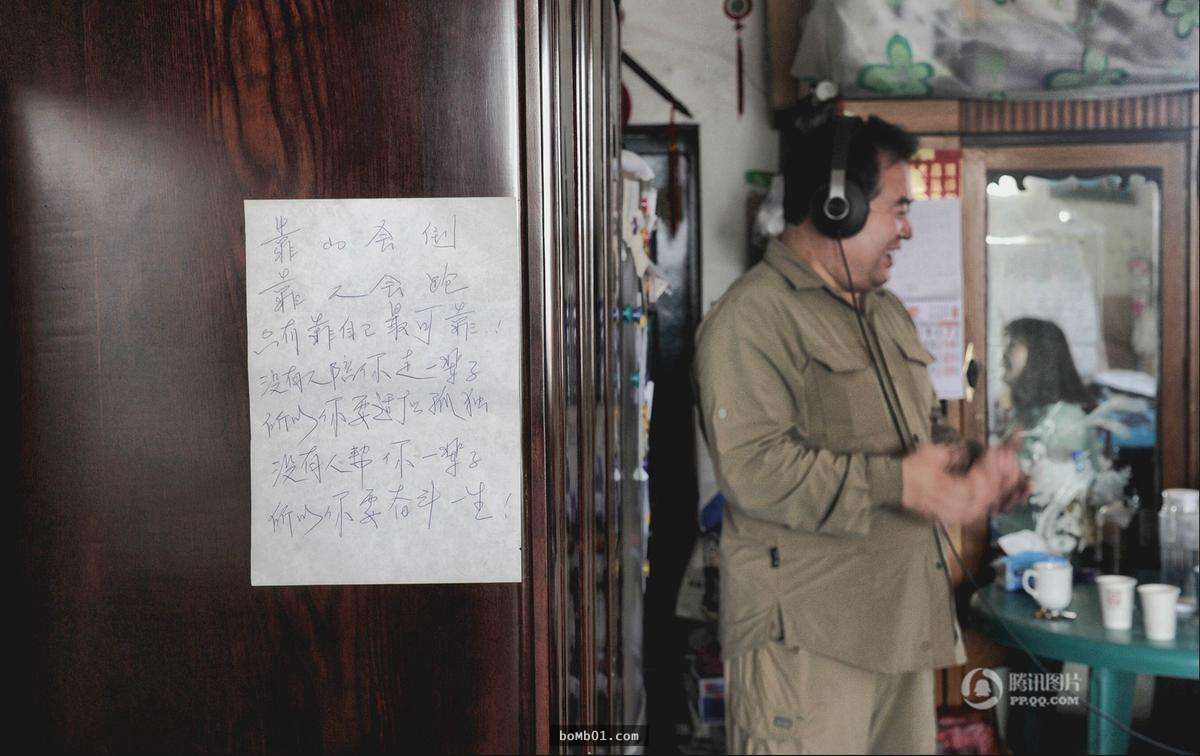 靠山会倒
靠人会跑
只有靠自己最可靠..!
没有人陪你走一辈子
所以你要适应孤独
没有人帮你一辈子
所以你要奋斗一生!
腾讯图片
PP.QQ.COM
boMb01.com